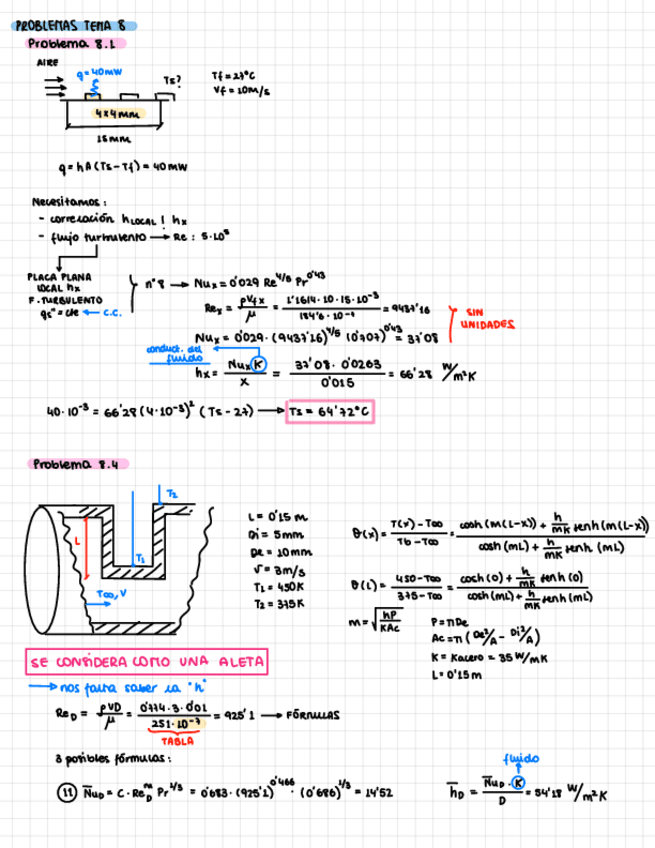 PROBLEMAS TEMA 8
Problema 8.1
AIRE
q=40mW
Ts?
Tf=27ºC
Vf=10m/s
4x4mm
15mm
q=hA(Ts-Tf)=40mW
Necesitamos:
- correlación hLOCAL! hx
- flujo turbulento → Re: 5·10⁵
PLACA PLANA
LOCAL hx
F. TURBULENTO
qs"=cte ← C.C.
nº8 → Nux=0'029 Re^4/5 Pr^0'43
Rex = ρVfx/μ = 1'1614·10·15·10⁻³/184'6·10⁻⁷ = 9437'16
Nux=0'029·(9437'16)^4/5 (0'707)^0'43 = 37'08
SIN
UNIDADES
conduct. del
fluido
hx = Nux K/x = 37'08·0'0263/0'015 = 66'28 W/m²K
40·10⁻³=66'28(4·10⁻³)²(Ts-27) → Ts=64'72ºC
Problema 8.4
T2
L
T1
T∞,V
L=0'15m
Di=5mm
De=10mm
V=3m/s
T1=450K
T2=375K
θ(x)= T(x)-T∞/Tb-T∞ = cosh(m(L-x))+ h/mK senh(m(L-x))/cosh(mL)+ h/mK senh(mL)
θ(L)= 450-T∞/375-T∞ = cosh(0)+ h/mK senh(0)/cosh(mL)+ h/mK senh(mL)
m=√hP/KAc
P=πDe
Ac=π(De²/4 - Di²/4)
K=Kacero=35W/mK
L=0'15m
SE CONSIDERA COMO UNA ALETA
→ nos falta saber la "h"
ReD = ρVD/μ = 0'774·3·0'01/251·10⁻⁷ = 925'1 → FÓRMULAS
TABLA
3 posibles fórmulas:
fluido
11 N̅uD = C·ReD^m Pr^1/3 = 0'683·(925'1)^0'466·(0'686)^1/3 = 14'52
h̅D = N̅uD·K/D = 54'18 W/m²K